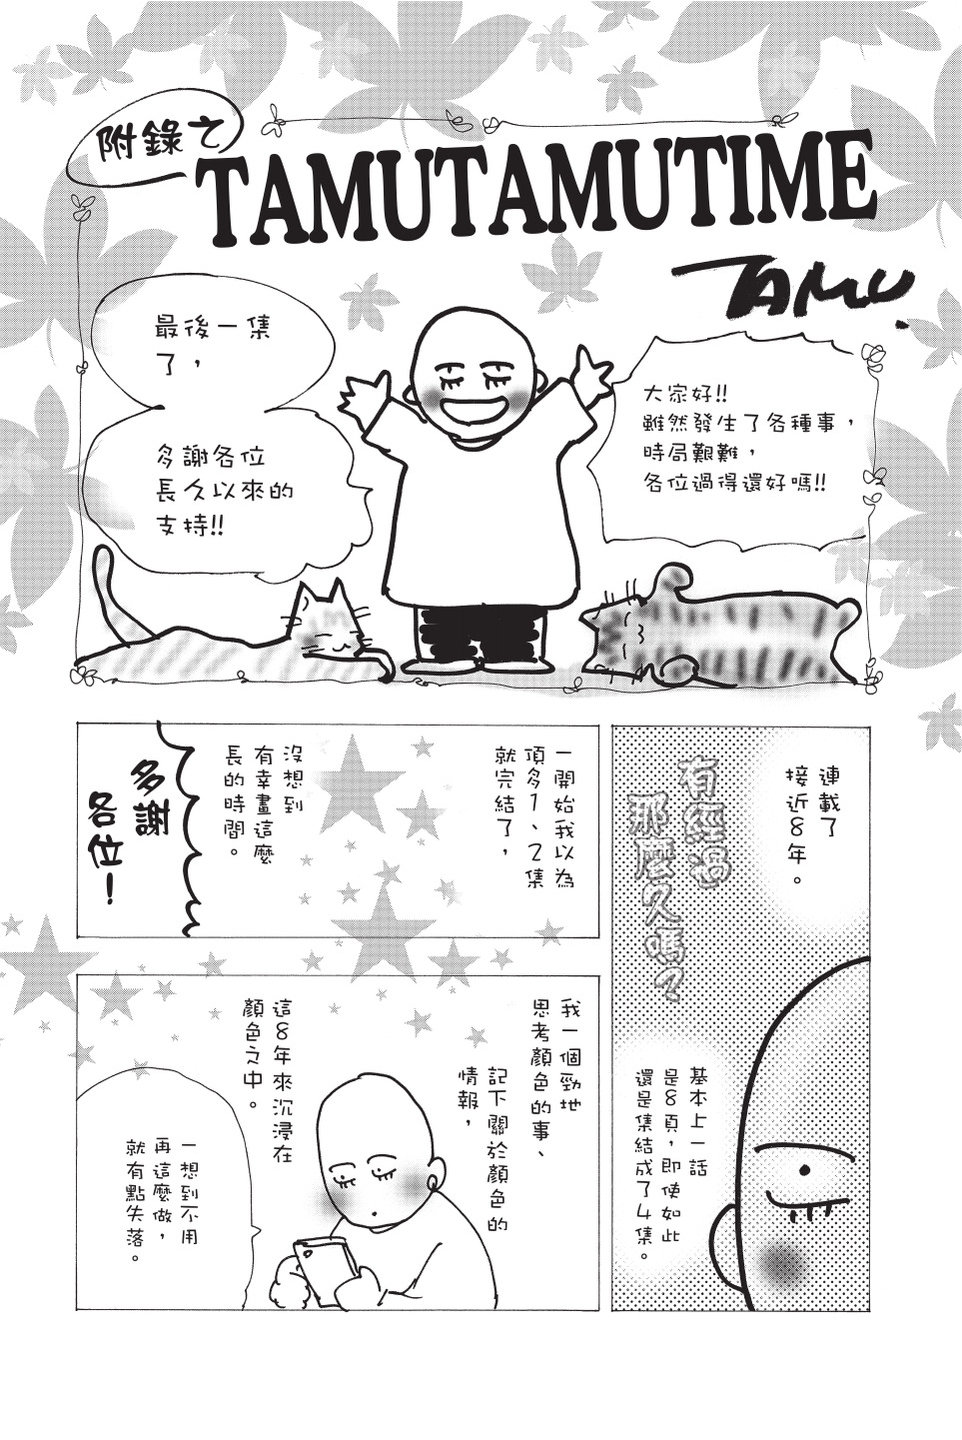 附錄之
TAMUTAMUTIME
TAMU.
大家好!!
雖然發生了各種事，
時局艱難，
各位過得還好嗎!!
最後一集
了，
多謝各位
長久以來的
支持!!
連載了
接近8年。
有經過
那麼久嗎？
基本上一話
是8頁，即使如此
還是集結成了4集。
一開始我以為
頂多1、2集
就完結了，
沒想到
有幸畫這麼
長的時間。
多謝
各位！
我一個勁地
思考顏色的事、
記下關於顏色的
情報，
這8年來沉浸在
顏色之中。
一想到不用
再這麼做，
就有點失落。